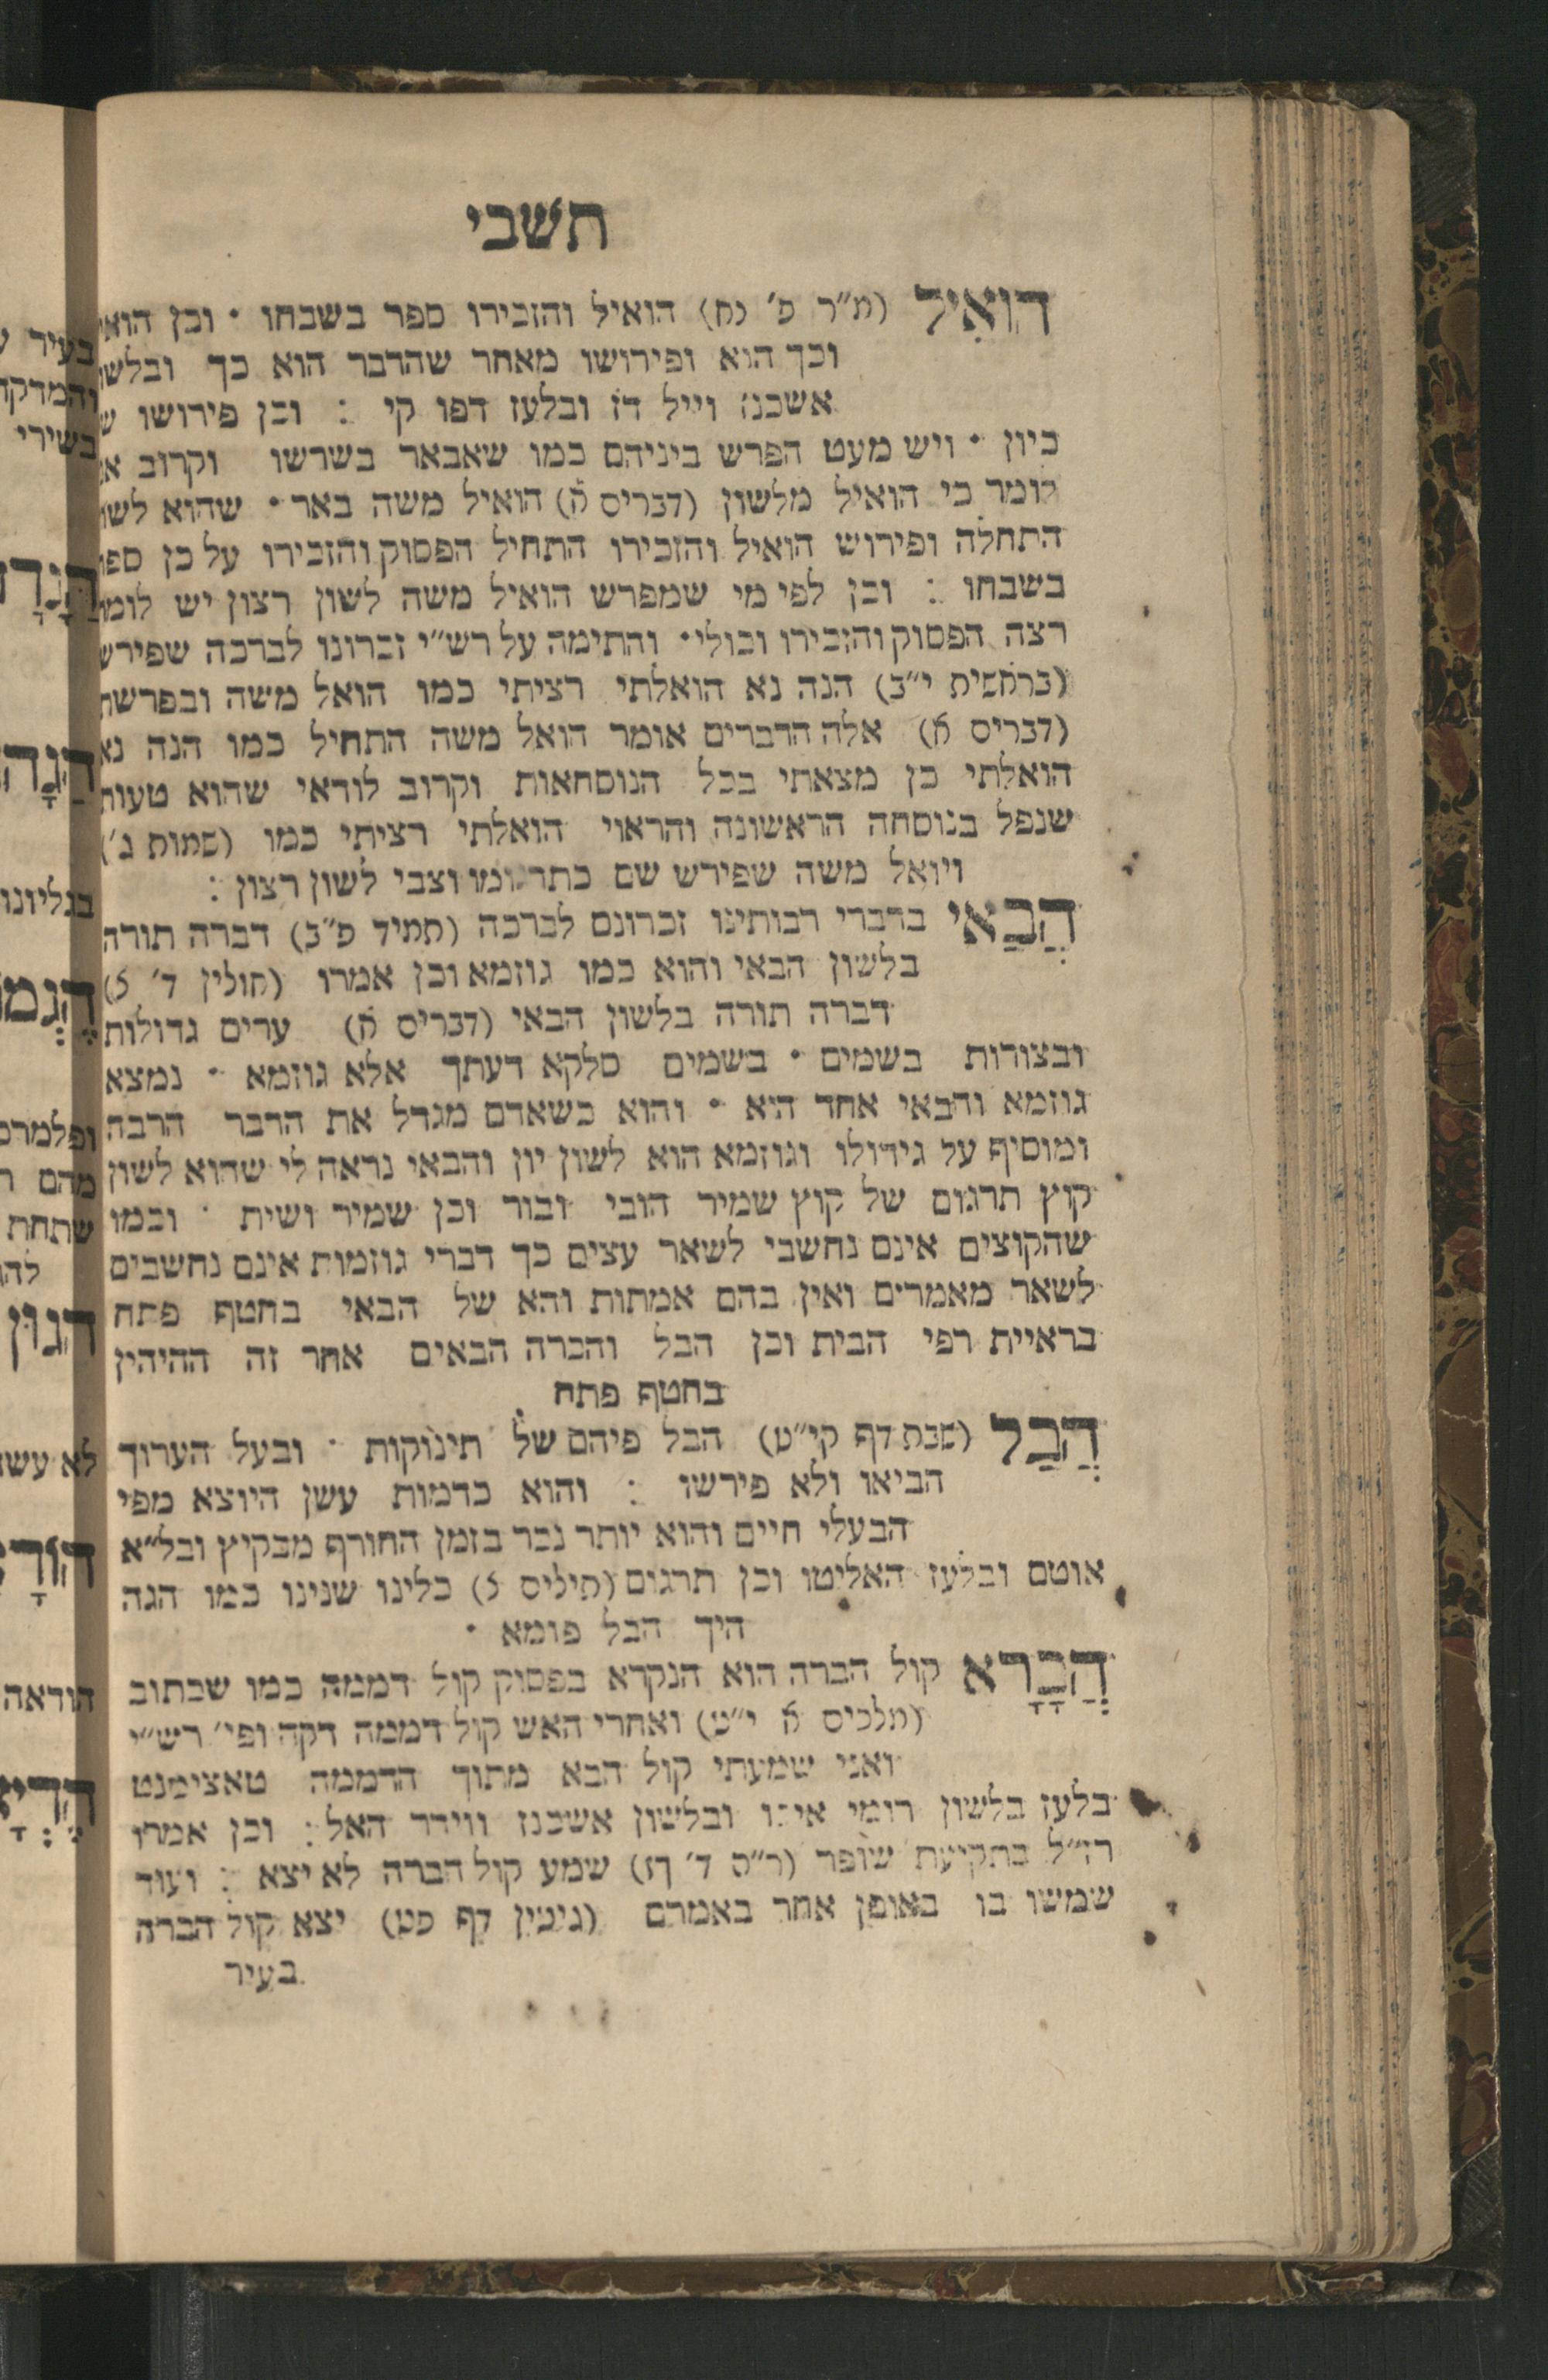 תשבי
הואיל (מ״ר פ׳ נח) הואיל והזכירו ספר בשבחו · וכן הואי
וכך הוא ופירושו מאחר שהדבר הוא כך ובלשו
אשכנז וייל דז ובלעז דפו קי : וכן פירושו ש
כיון · ויש מעט הפרש ביניהם כמו שאבאר בשרשו וקרוב א
לומר כי הואיל מלשון (דברים א) הואיל משה באר · שהוא לשו
התחלה ופירוש הואיל והזכירו התחיל הפסוק והזכירו על כן ספ
בשבחו : וכן לפי מי שמפרש הואיל משה לשון רצון יש לומ
רצה הפסוק והזכירו וכולי · והתימה על רש״י זכרונו לברכה שפירש
(בראשית י״ב) הנה נא הואלתי רציתי כמו הואל משה ובפרשת
(דברים א) אלה הדברים אומר הואל משה התחיל כמו הנה נא
הואלתי כן מצאתי בכל הנוסחאות וקרוב לודאי שהוא טעות
שנפל בנוסחה הראשונה והראוי הואלתי רציתי כמו (שמות ב׳)
ויואל משה שפירש שם כתרגומו וצבי לשון רצון :
הֲבַאי בדברי רבותינו זכרונם לברכה (תמיד פ״ב) דברה תורה
בלשון הבאי והוא כמו גוזמא וכן אמרו (חולין ד׳ צ)
דברה תורה בלשון הבאי (דברים א) ערים גדולות
ובצורות בשמים · בשמים סלקא דעתך אלא גוזמא · נמצא
גוזמא והבאי אחד היא · והוא כשאדם מגדל את הדבר הרבה
ומוסיף על גידולו וגוזמא הוא לשון יון והבאי נראה לי שהוא לשון
קוץ תרגום של קוץ שמיר הובי ובור וכן שמיר ושית · וכמו
שהקוצים אינם נחשבי לשאר עצים כך דברי גוזמות אינם נחשבים
לשאר מאמרים ואין בהם אמתות והא של הבאי בחטף פתח
בראיית רפי הבית וכן הבל והברה הבאים אחר זה ההיהין
בחטף פתח
הֲבַל (שבת דף קי״ט) הבל פיהם של תינוקות · ובעל הערוך
הביאו ולא פירשו : והוא כדמות עשן היוצא מפי
הבעלי חיים והוא יותר נכר בזמן החורף מבקיץ ובל״א
אוטם ובלעז האליטו וכן תרגום (תילים צ) כלינו שנינו כמו הגה
היך הבל פומא ·
הֲבָרָא קול הברה הוא הנקרא בפסוק קול דממה כמו שכתוב
(מלכים א י״ט) ואחרי האש קול דממה דקה ופי׳ רש״י
ואני שמעתי קול הבא מתוך הדממה טאצימנט
בלעז בלשון רומי ובלשון אשכנז ווידר האל : וכן אמרו
רז״ל בתקיעת שופר (ר״ה ד׳ ךז) שמע קול הברה לא יצא : ועוד
שמשו בו באופן אחר באמרם (גיטין דף פט) יצא קול הברה
בעיר